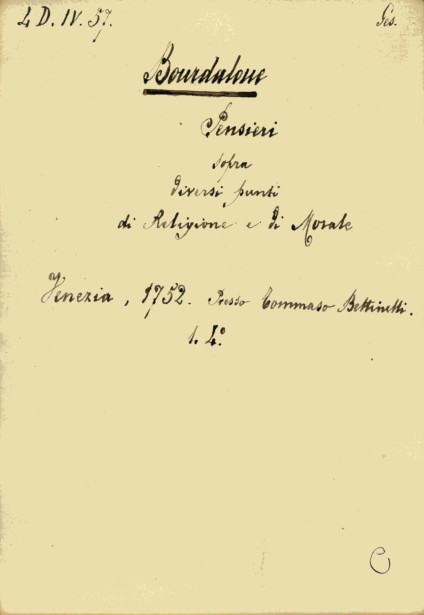 4 D. IV. 57. Ges.
Bourdaloue
Pensieri
sopra
diversi punti
di Religione e di Morale
Venezia, 1752. Presso Tommaso Bettinelli.
1. 4°
C